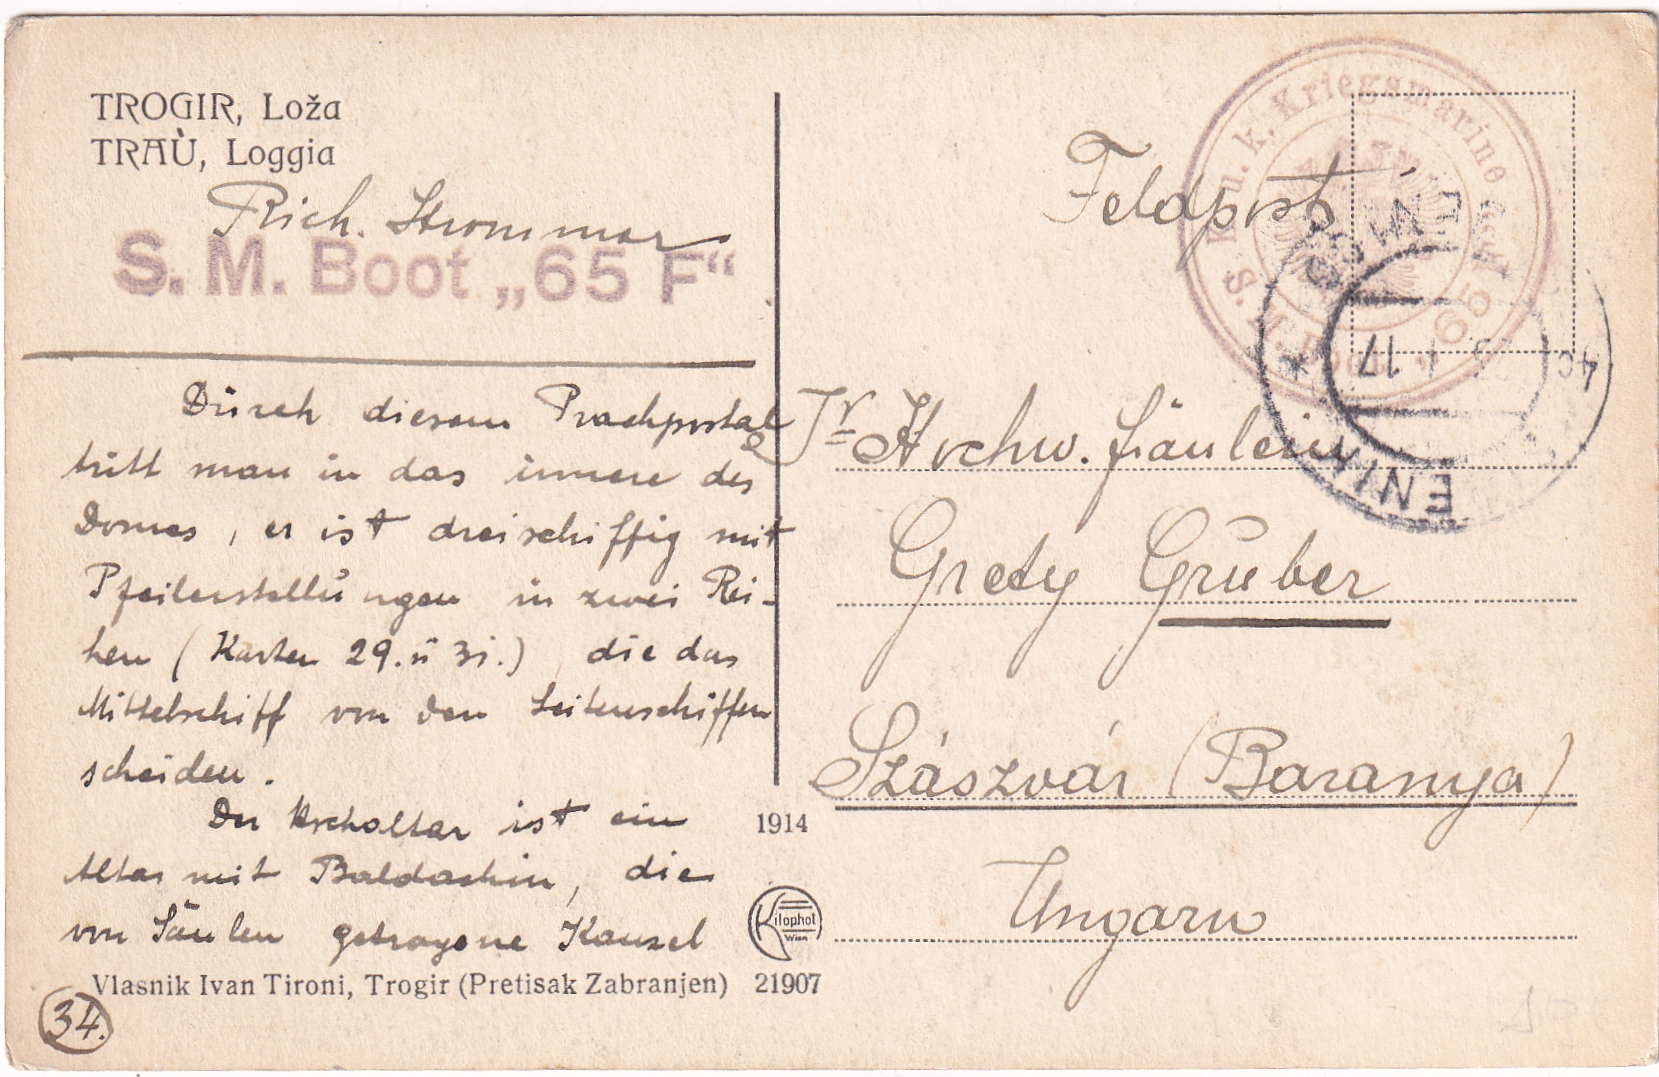 TROGIR, Loža
TRAÙ, Loggia
Rich. Strommer
S. M. Boot „65 F“
Dŭrch diesem Prachportal
tritt man in das innere des
Domes, er ist dreischiffig mit
Pfeilerstellŭngen in zwei Rei-
hen (Karten 29. ŭ 31.), die das
Mittelschiff von den Seitenschiffen
scheiden.
Der Hochaltar ist ein
Altar mit Baldachin, die
von Säulen getragene Kanzel
Vlasnik Ivan Tironi, Trogir (Pretisak Zabranjen)
34.
1914
Kilophot
Wien
21907
Feldpost
K. u. k. Kriegsmarine
S. M. Boot 65
17
4c
Hochw. Fräulein
Grety Grŭber
Szászvár (Baranya)
Ungarn